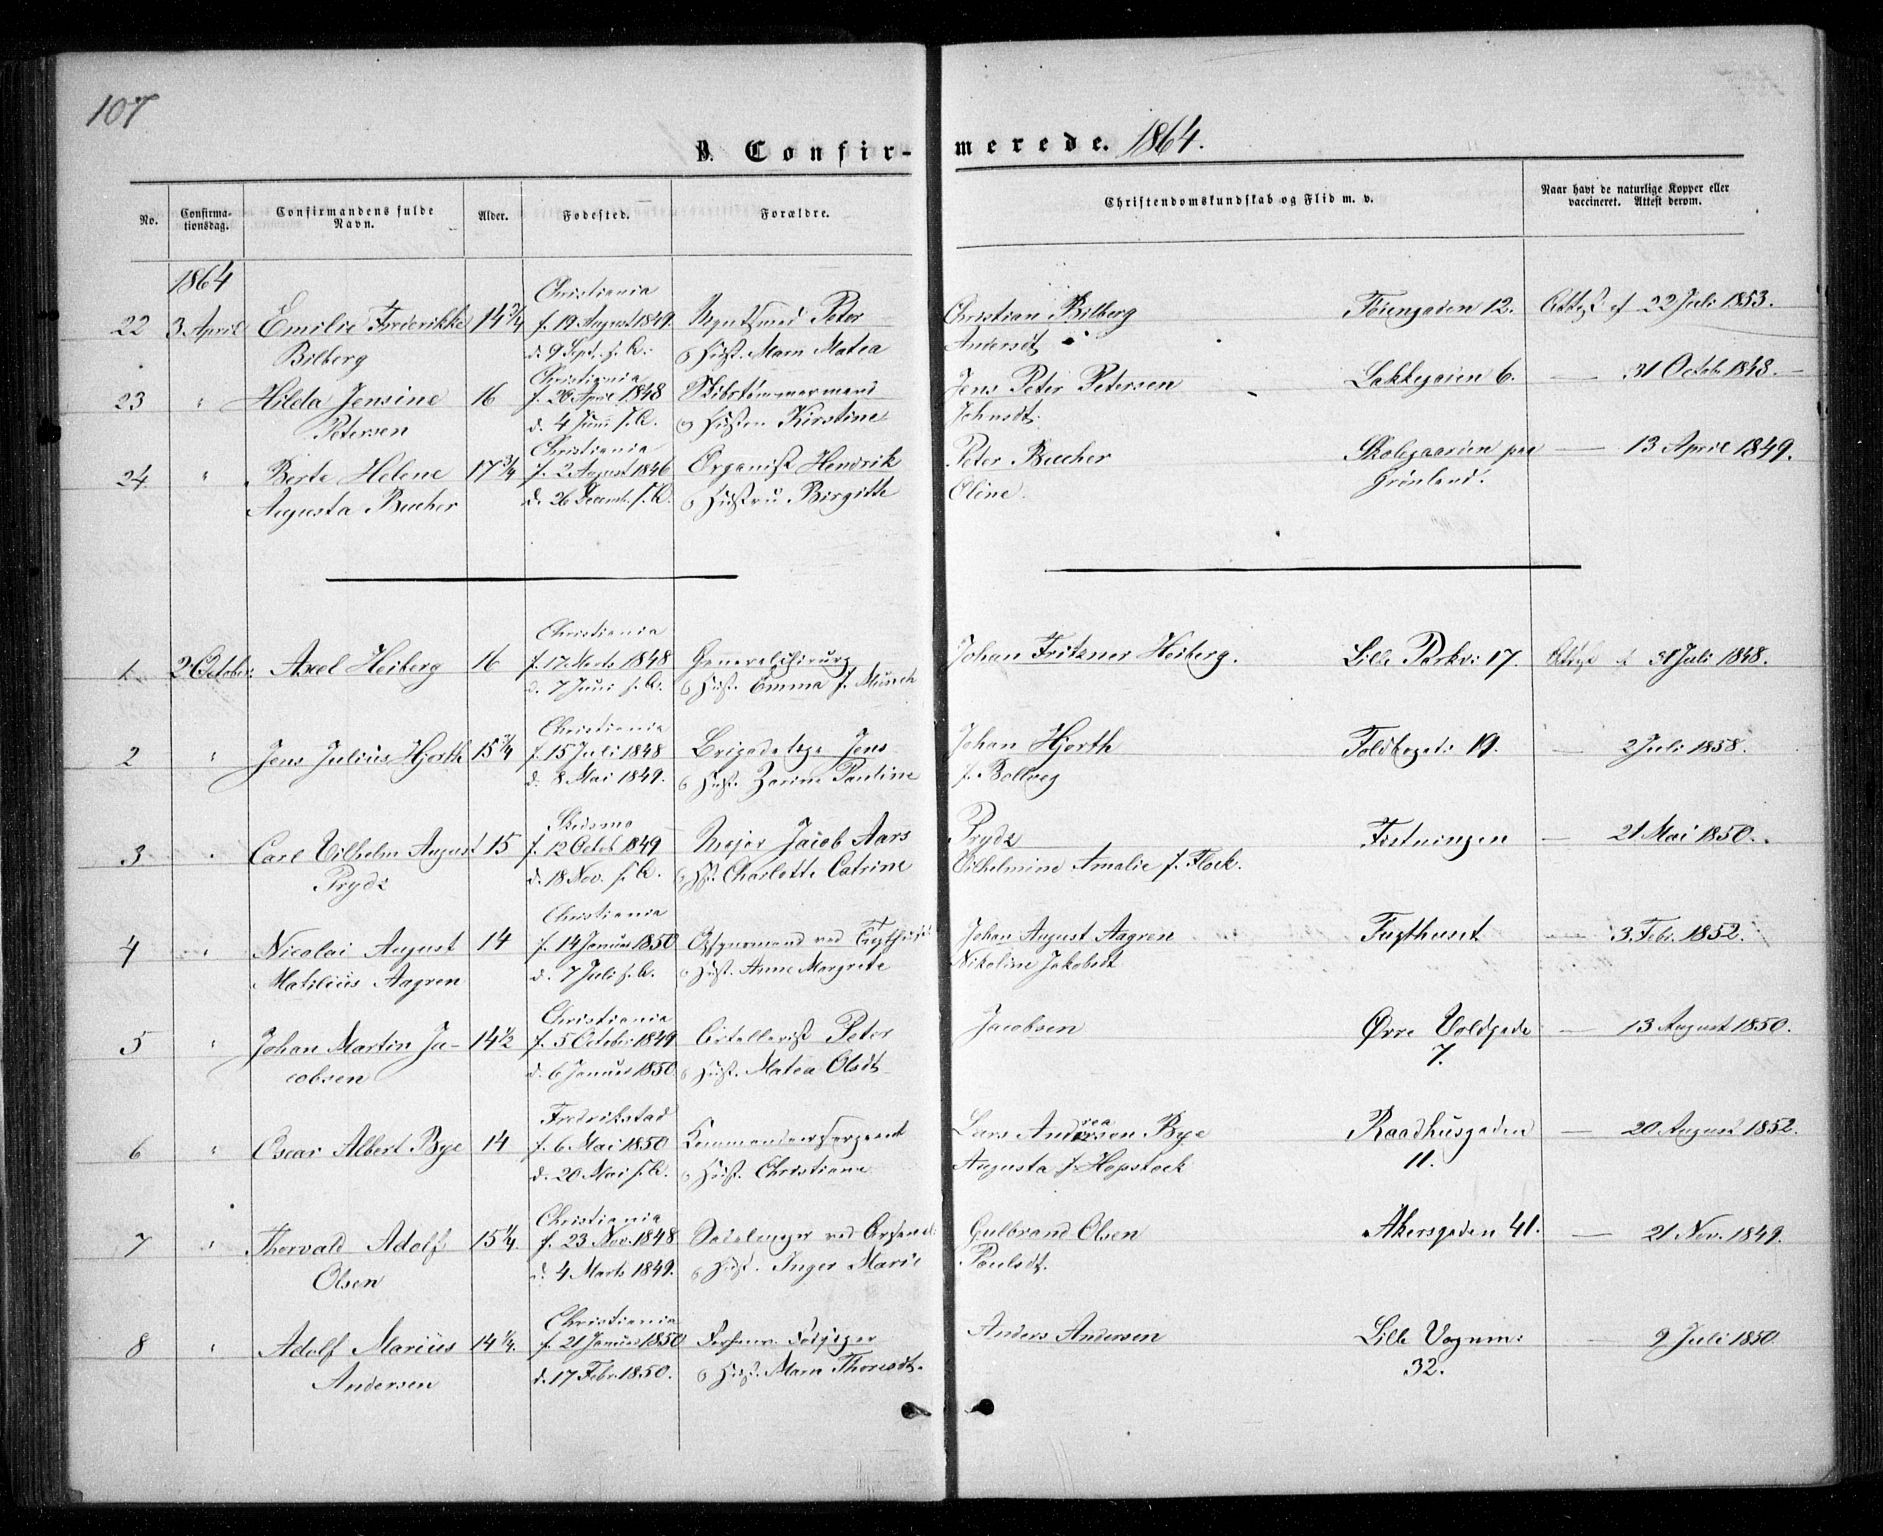 107
B. Confir-merede. 1864.
No. Confirma-tionsdag. Confirmandens fulde Navn. Alder. Fødested. Forældre. Christendomskundskab og Flid m. v. Naar havt de naturlige Kopper eller vaccineret. Attest derom.
1864
Christiania
22 3. April Emilie Frederikke 14 3/4 f. 19 August 1849. Peter Christian Bilberg 12. Attest af 22 Juli 1853.
Bilberg d. 9 Sept. s. A. & Hust. Maren Matea Andersdt.
Christiania
23 " Hilda Jensine 16 f. 20 April 1848 Skibstømmermand Jens Peter Petersen Lakkegaden 6. — 31 Octob. 1848. —
Petersen d. 4 Juni s. A. & Hustru Kirstine Johnsdt.
Christiania
24. " Berte Helene 17 3/4 f. 2 August 1846 Organist Hendrik Peter Bucher Skolegaarden paa — 13 April 1849.
Augusta Bucher d. 26 Decemb. s. A. & Hustru Birgitte Oline. Grønland.
Christiania
1. 2 October: Axel Heiberg 16 f. 17 Marts 1848 Generalchirurg Johan Fritzner Heiberg. Lille Parkv: 17. Attest af 31 Juli 1848.
d. 7 Juni s. A. & Hust. Emma f. Münch
Christiania
2 " Jens Julius Hjorth 15 3/4 f. 15 Juli 1848 Brigadelæge Jens Johan Hjorth Toldbogt: 19. — 2 Juli 1858.
d. 8 Mai 1849. & Hust. Zarine Pauline f. Bollveg
Skedsmo
3 " Carl Vilhelm August 15 f. 12 Octob 1849 Major Jacob Aars Prydz Festningen — 21 Mai 1850.
Prydz d. 18 Nov. s. A. & Hst. Charlotte Catrine Vilhelmine Amalie f. Flock.
Christiania
4 " Nicolai August 14 f. 14 Januar 1850 Opsynsmand ved Tugthuset Johan August Aagren Tugthuset — 3. Febr. 1852.
Matilius Aagren d. 7 Juli s. A. & Hust. Anne Margrete Nikoline Jakobsdt
Christiania
5 " Johan Martin Ja- 14 1/2 f. 5 October 1849. Artillerist Peter Jacobsen Øvre Voldgade — 13 August 1850.
cobsen d. 6 Januar 1850. & Hust. Matea Olsdt. 7.
Fredrikstad
6 " Oscar Albert Bye 14 f. 6 Mai 1850 Kommandeersergeant Lars Andreasen Bye Raadhusgaden — 20 August 1852.
d. 20 Mai s. A. & Hust. Christiane Augusta f. Hopstock 11.
Christiania
7 " Thorvald Adolf 15 1/4. f. 23 Nov. 1848 Sadelmager ved Arsenal: Gulbrand Olsen Akersgaden 41. — 21 Nov. 1849.
Olsen d. 4 Marts 1849. & Hust. Inger Marie Paulsdt.
Christiania
8 " Adolf Marius 14 1/4. f. 21 Januar 1850 Anders Andersen Lille Vognm: — 9 Juli 1850
Andersen d. 17 Febr 1850. & Hust. Maren Thoresdt. 32.